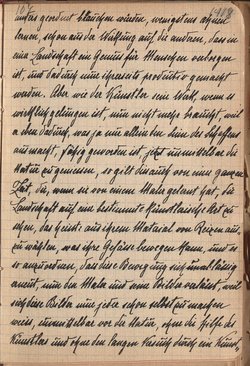 etwas geordnet
lernen, schon aus der Wirkung auf die anderen, dass in
der Landschaft ein Genuss für Menschen verborgen
ist, und dadurch nun ihrerseits produktiv gemacht
werden. Aber wie der Künstler sein Werk, wenn es
wirklich gelungen ist, nun nicht mehr braucht, weil
er eben dadurch, was ja nun allein der Sinn des Schaffens
ausmacht, fähig geworden ist, jetzt unmittelbar die
Natur zu geniessen, so gilt dies auch von einer ganzen
Zeit, die, wenn sie von einem Maler gelernt hat, die
Landschaft auf eine bestimmte künstlerische Art zu
sehen, das heisst aus ihrem Material von Reizen aus-
zuwählen, was ihre Gefühle bewegen kann, und es
so anzuordnen, dass diese Bewegung sich unablässig
erneut, nun den Maler und seine Bilder verlässt, weil
sich diese Bilder nun jeder schon selbst zu machen
weiss, unmittelbar vor der Natur, ohne die Hilfe des
Künstlers und ohne den langen Versuch durch ein Kunst-